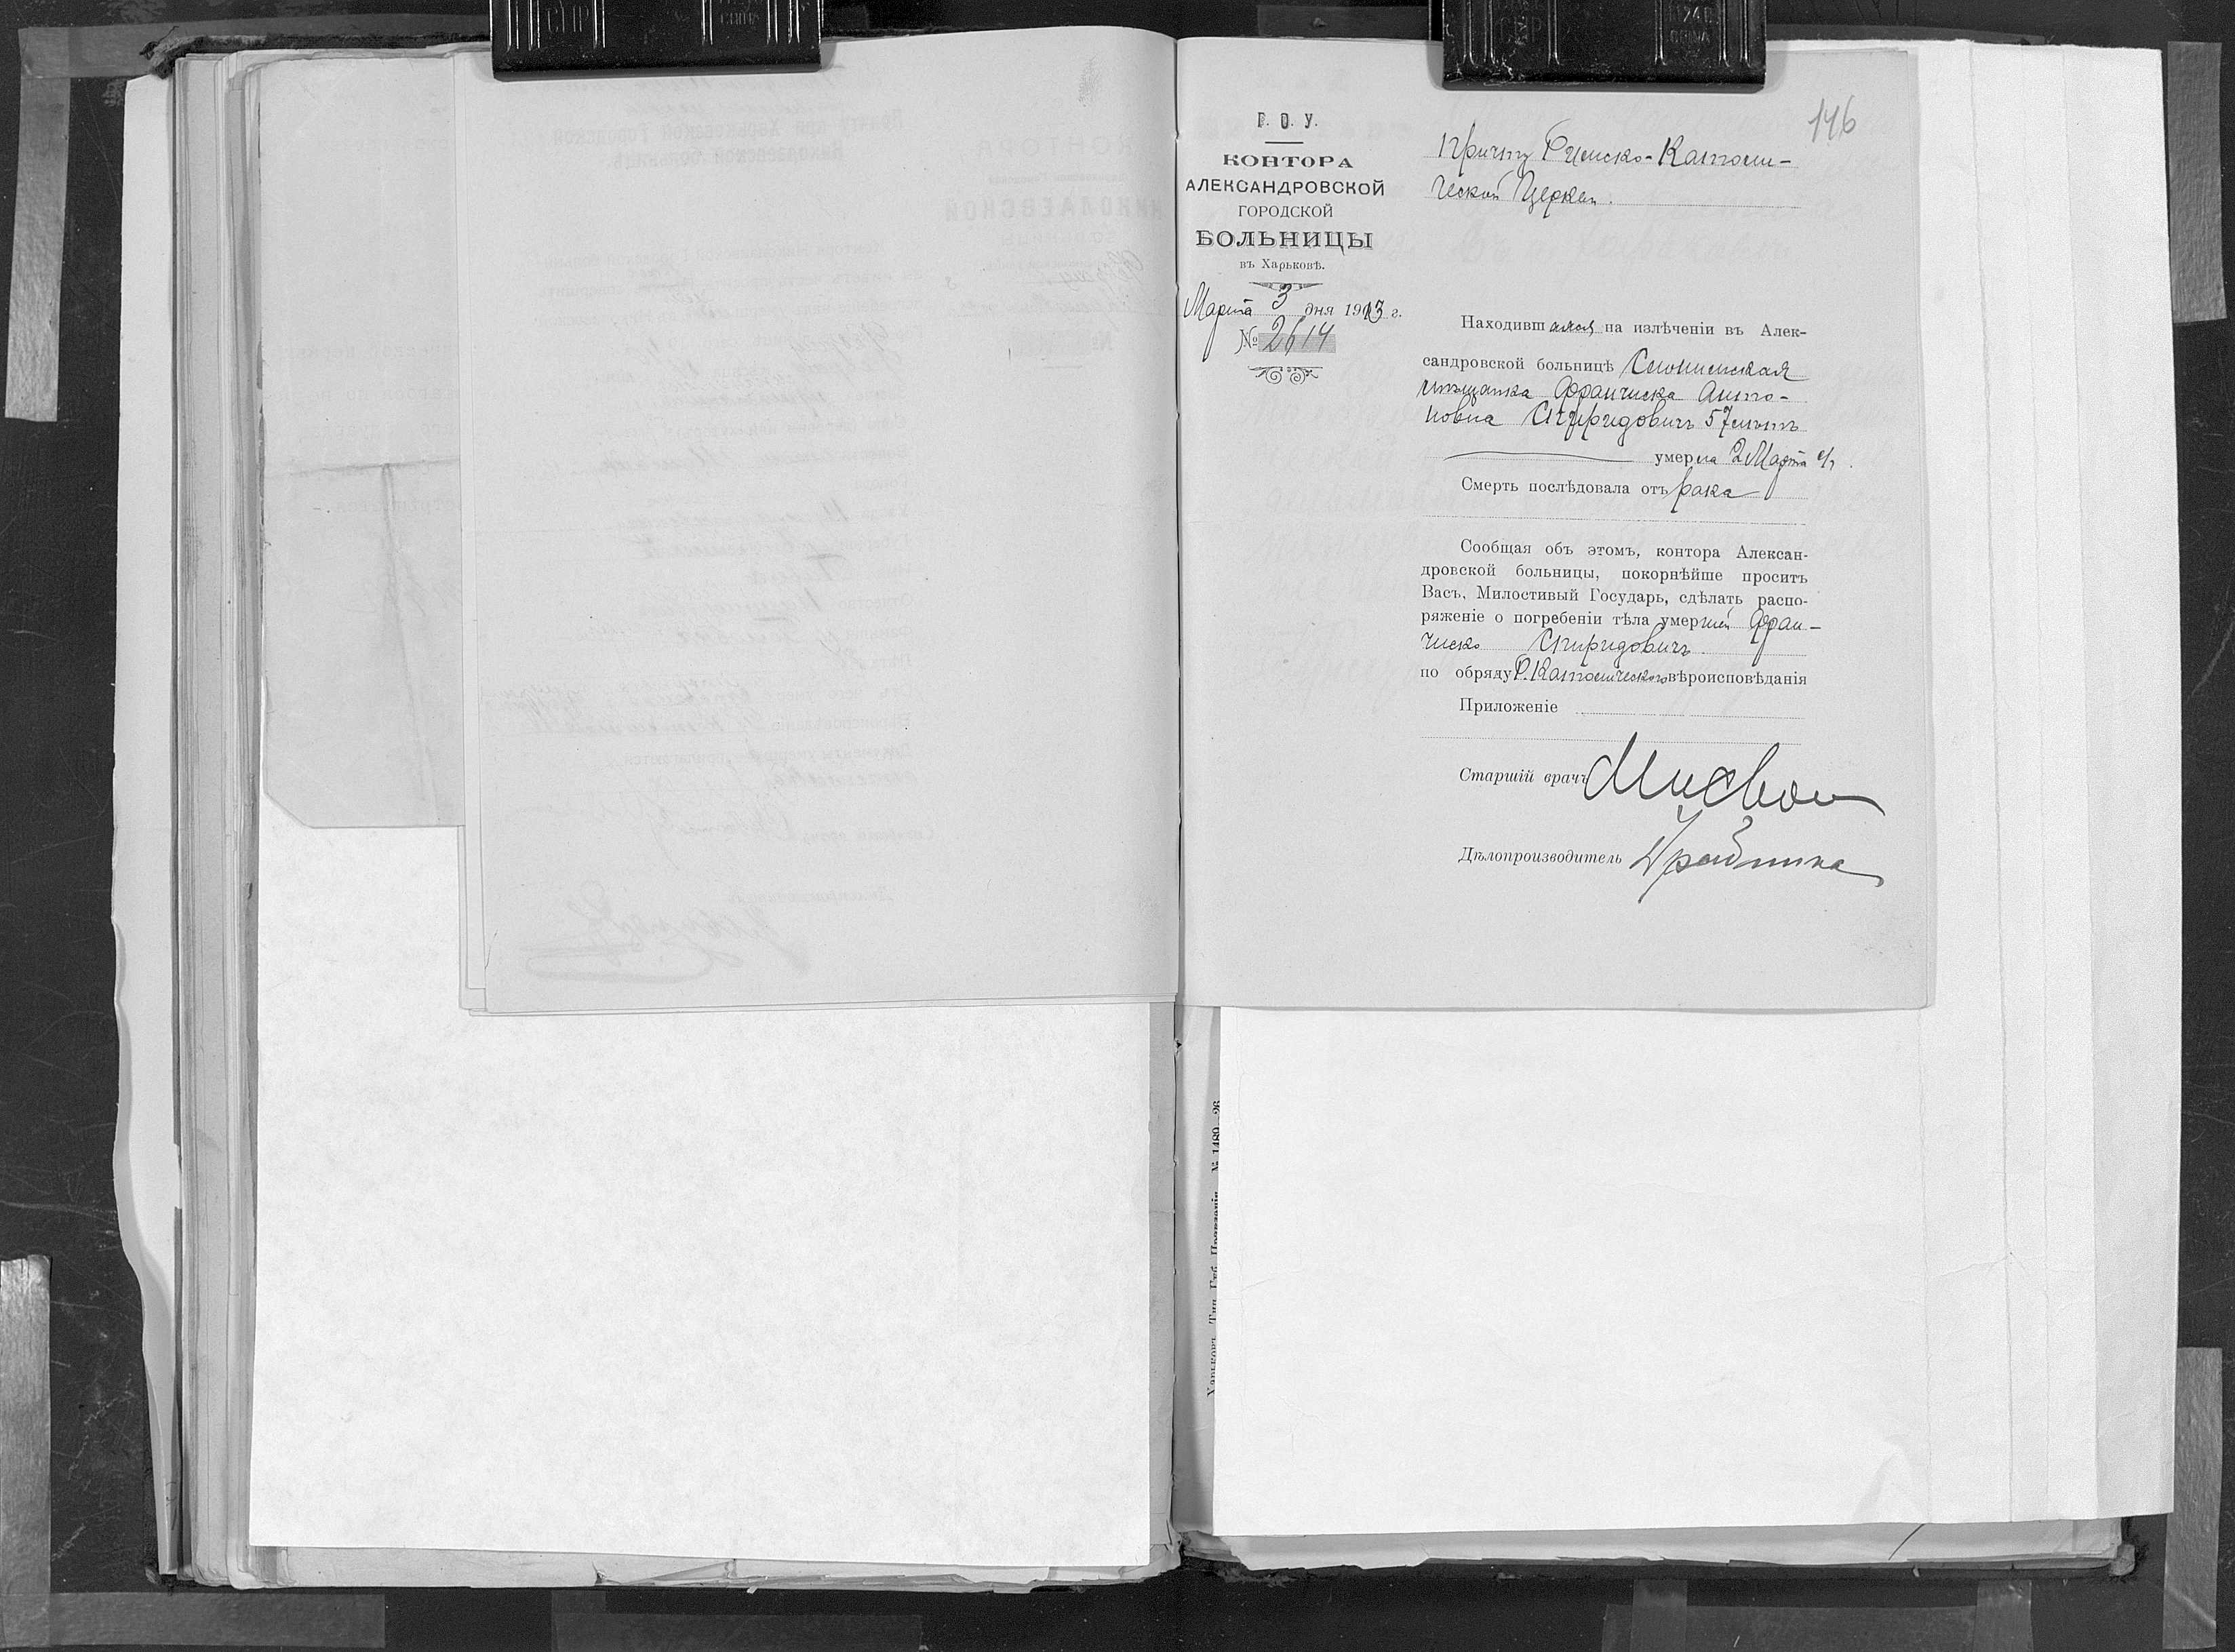 146
Г. О. У.
КОНТОРА
АЛЕКСАНДРОВСКОЙ
ГОРОДСКОЙ
БОЛЬНИЦЫ
въ Харьковѣ.
Марта 3 дня 1913 г.
№ 2614
Причту Римско-Католи-
ческой Церкви.
Находившаяся на излѣченіи въ Алек-
сандровской больницѣ Слонимская
мѣщанка Франчиска Анто-
новна Спиридовичъ 57 лѣтъ
умерла 2 Марта с/г.
Смерть послѣдовала отъ рака
Сообщая объ этомъ, контора Алексан-
дровской больницы, покорнѣйше проситъ
Васъ, Милостивый Государь, сдѣлать распо-
ряженіе о погребеніи тѣла умершей Фран-
чиско Спиридовичъ
по обряду Р. Католическаго вѣроисповѣданія
Приложеніе
Старшій врачъ
Дѣлопроизводитель
Харьковъ. Тип. Губ. Правленія. № 1469—26